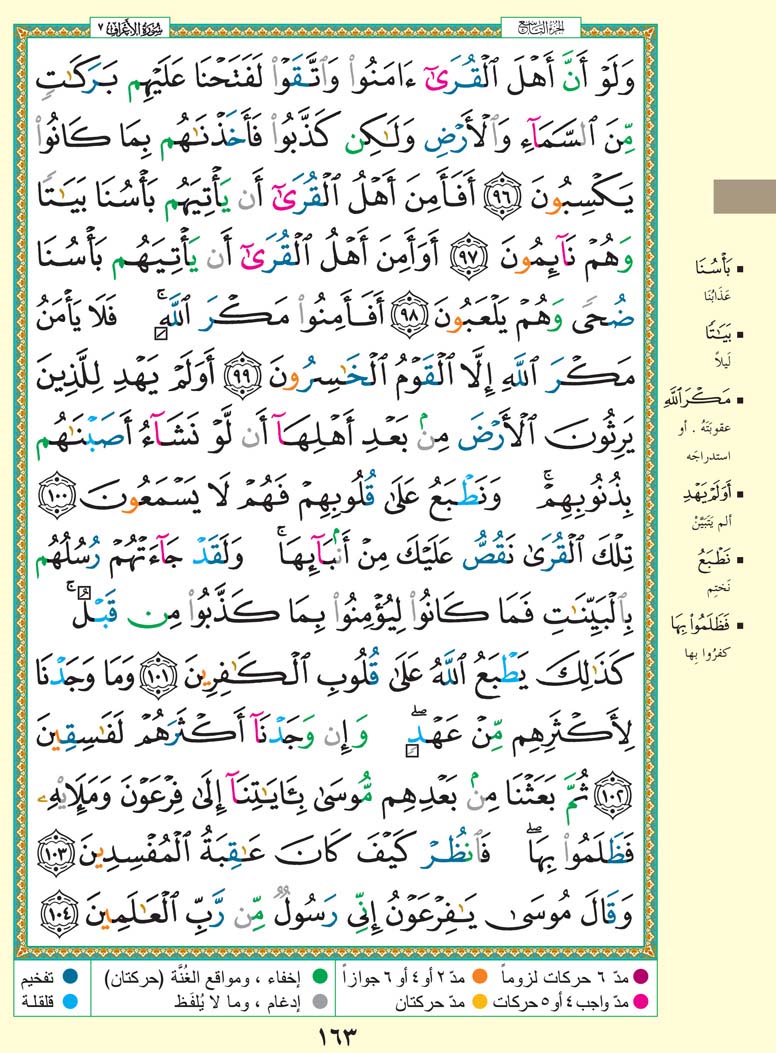 سُورَةُ الأَعْرَافِ ٧
الجُزْءُ التَّاسِعُ
وَلَوْ أَنَّ أَهْلَ ٱلْقُرَىٰٓ ءَامَنُوا۟ وَٱتَّقَوْا۟ لَفَتَحْنَا عَلَيْهِم بَرَكَٰتٍ
مِّنَ ٱلسَّمَآءِ وَٱلْأَرْضِ وَلَٰكِن كَذَّبُوا۟ فَأَخَذْنَٰهُم بِمَا كَانُوا۟
يَكْسِبُونَ ٩٦ أَفَأَمِنَ أَهْلُ ٱلْقُرَىٰٓ أَن يَأْتِيَهُم بَأْسُنَا بَيَٰتًا
وَهُمْ نَآئِمُونَ ٩٧ أَوَأَمِنَ أَهْلُ ٱلْقُرَىٰٓ أَن يَأْتِيَهُم بَأْسُنَا
ضُحًى وَهُمْ يَلْعَبُونَ ٩٨ أَفَأَمِنُوا۟ مَكْرَ ٱللَّهِ ۚ فَلَا يَأْمَنُ
مَكْرَ ٱللَّهِ إِلَّا ٱلْقَوْمُ ٱلْخَٰسِرُونَ ٩٩ أَوَلَمْ يَهْدِ لِلَّذِينَ
يَرِثُونَ ٱلْأَرْضَ مِنۢ بَعْدِ أَهْلِهَآ أَن لَّوْ نَشَآءُ أَصَبْنَٰهُم
بِذُنُوبِهِمْ ۚ وَنَطْبَعُ عَلَىٰ قُلُوبِهِمْ فَهُمْ لَا يَسْمَعُونَ ١٠٠
تِلْكَ ٱلْقُرَىٰ نَقُصُّ عَلَيْكَ مِنْ أَنۢبَآئِهَا ۚ وَلَقَدْ جَآءَتْهُمْ رُسُلُهُم
بِٱلْبَيِّنَٰتِ فَمَا كَانُوا۟ لِيُؤْمِنُوا۟ بِمَا كَذَّبُوا۟ مِن قَبْلُ ۚ
كَذَٰلِكَ يَطْبَعُ ٱللَّهُ عَلَىٰ قُلُوبِ ٱلْكَٰفِرِينَ ١٠١ وَمَا وَجَدْنَا
لِأَكْثَرِهِم مِّنْ عَهْدٍ ۖ وَإِن وَجَدْنَآ أَكْثَرَهُمْ لَفَٰسِقِينَ
١٠٢ ثُمَّ بَعَثْنَا مِنۢ بَعْدِهِم مُّوسَىٰ بِـَٔايَٰتِنَآ إِلَىٰ فِرْعَوْنَ وَمَلَإِي۟هِۦ
فَظَلَمُوا۟ بِهَا ۖ فَٱنظُرْ كَيْفَ كَانَ عَٰقِبَةُ ٱلْمُفْسِدِينَ ١٠٣
وَقَالَ مُوسَىٰ يَٰفِرْعَوْنُ إِنِّى رَسُولٌ مِّن رَّبِّ ٱلْعَٰلَمِينَ ١٠٤
▪ بَأْسُنَا
عَذَابُنَا
▪ بَيَٰتًا
لَيلاً
▪ مَكْرَ ٱللَّهِ
عقوبَتَهُ . أو
استدراجَه
▪ أَوَلَمْ يَهْدِ
ألم يَتَبَيَّنْ
▪ نَطْبَعُ
نَختِم
▪ فَظَلَمُوا۟ بِهَا
كفرُوا بِها
مدّ ٦ حركات لزوماً
مدّ ٢ أو ٤ أو ٦ جوازاً
إخفاء ، ومواقع الغُنَّة (حركتان)
تفخيم
مدّ واجب ٤ أو ٥ حركات
مدّ حركتان
إدغام ، وما لا يُلفَظ
قلقلة
١٦٣